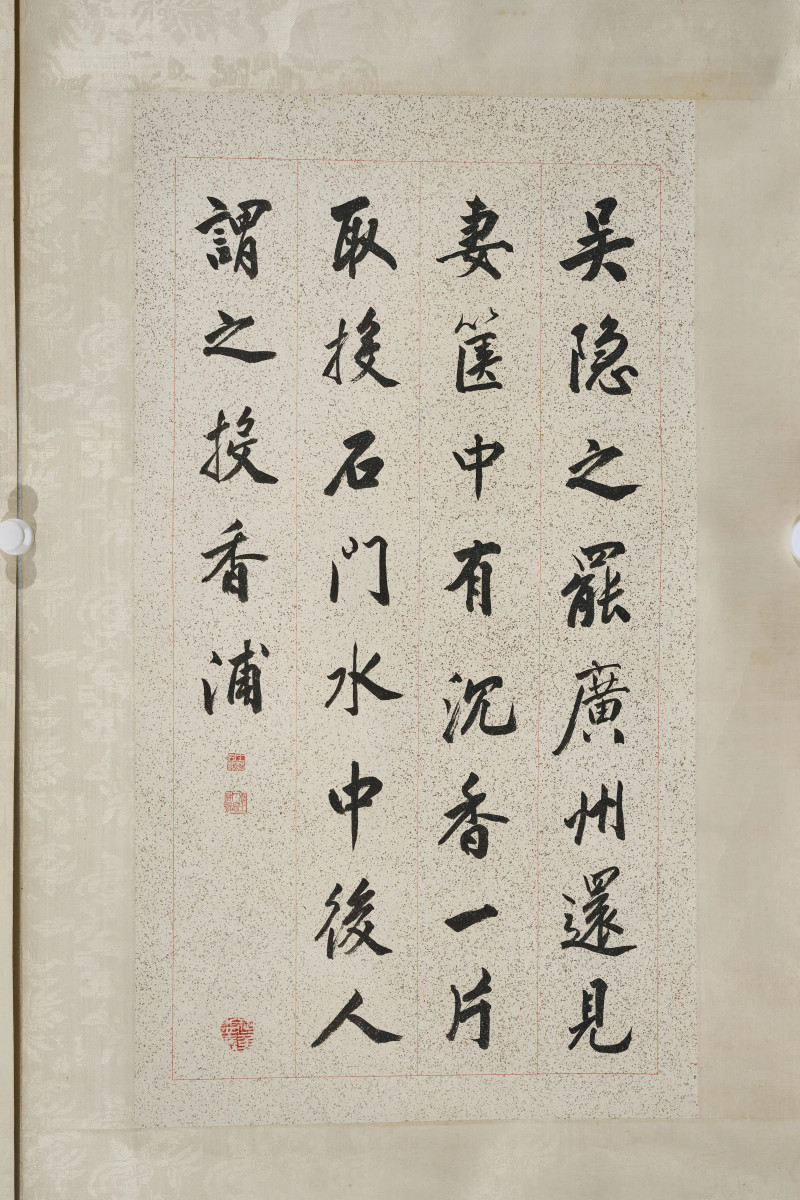 吴隐之罷廣州還見
妻箧中有沉香一片
取投石門水中後人
謂之投香浦